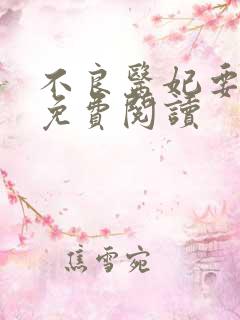 不良醫妃要
免費閱讀
焦雪宛